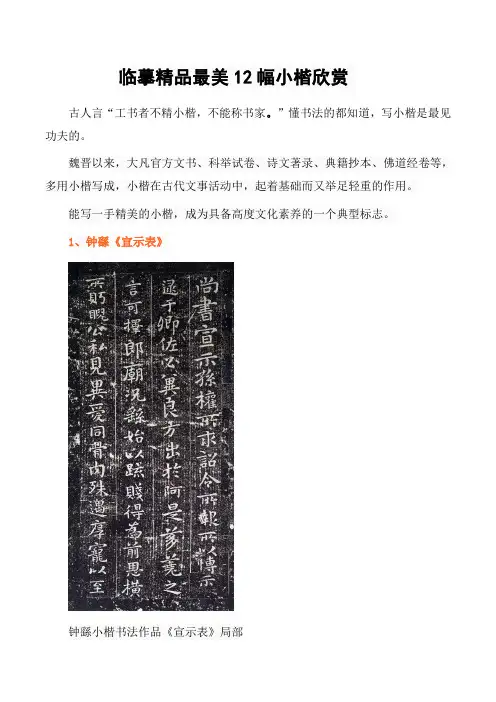 临摹精品最美12幅小楷欣赏
古人言“工书者不精小楷，不能称书家。”懂书法的都知道，写小楷是最见
功夫的。
魏晋以来，大凡官方文书、科举试卷、诗文著录、典籍抄本、佛道经卷等，
多用小楷写成，小楷在古代文事活动中，起着基础而又举足轻重的作用。
能写一手精美的小楷，成为具备高度文化素养的一个典型标志。
1、钟繇《宣示表》
尚書宣示孫權所求詔令所報所以博示
逮于卿佐必異良方出於阿是芻蕘之
言可擇郎廟況繇始以疏賤得為前恩橫
所眄睨公私見異愛同骨肉殊遇厚寵以至
钟繇小楷书法作品《宣示表》局部